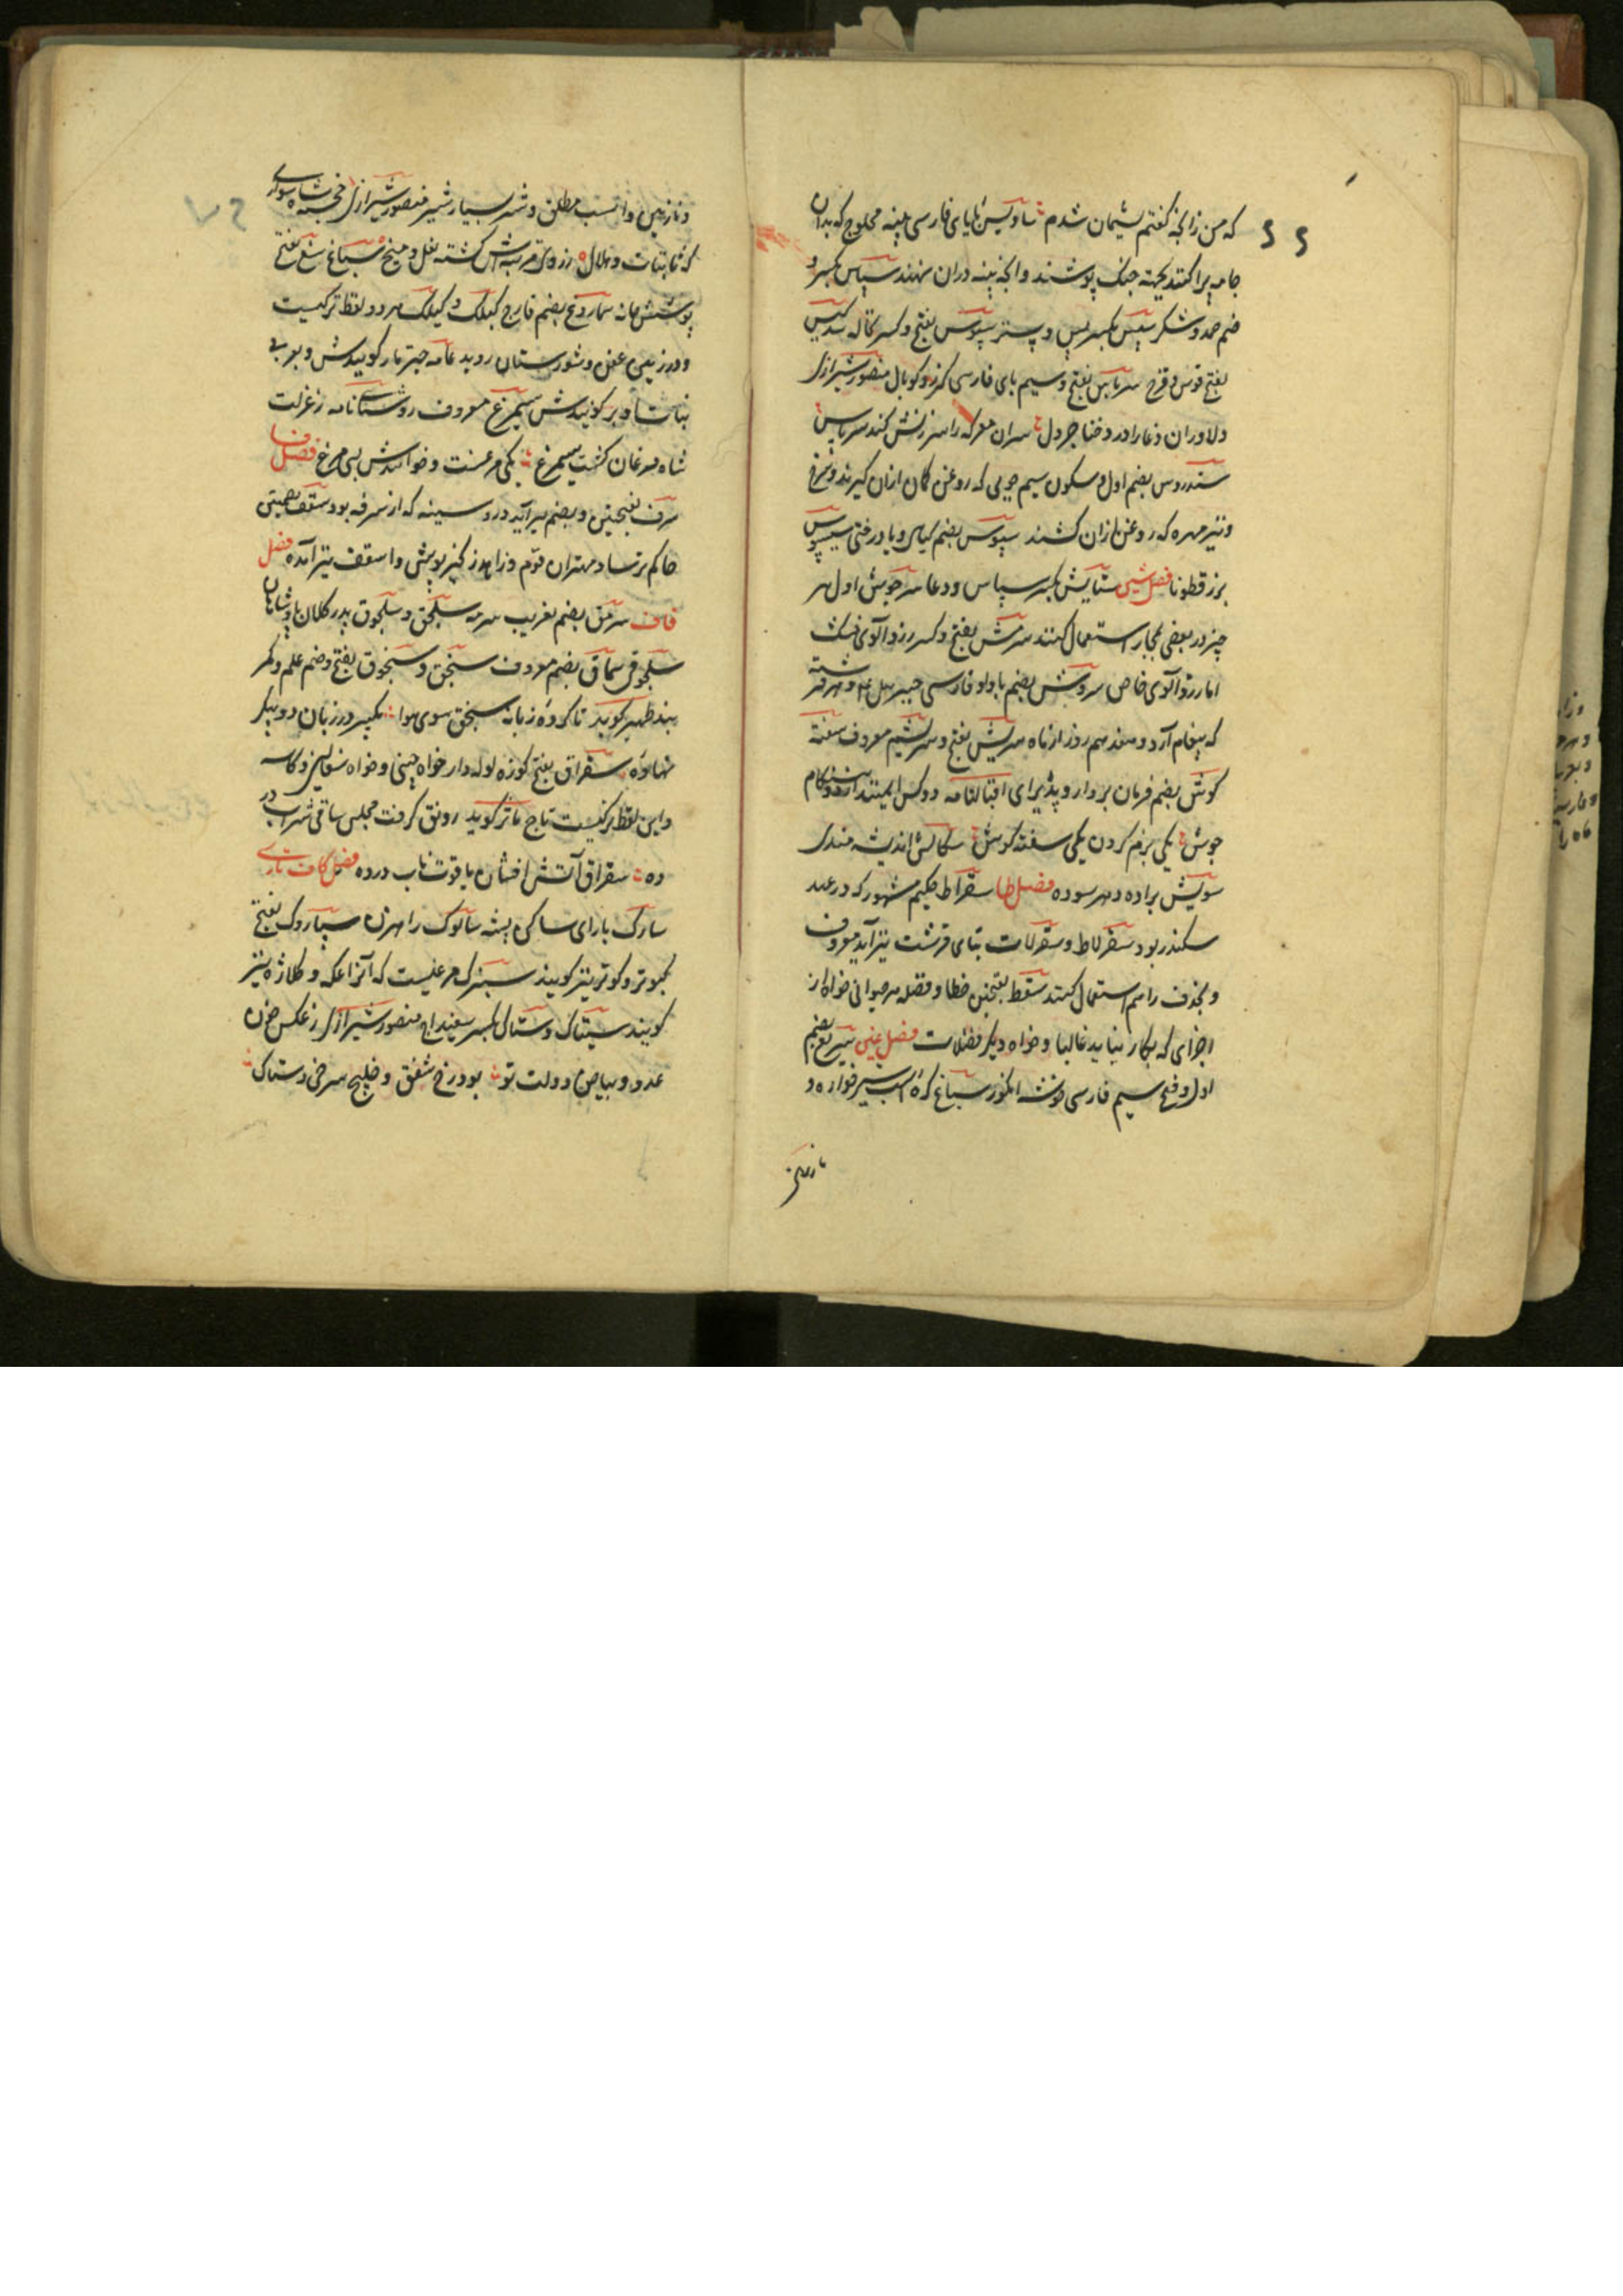 که من زانچه گفتم پشیمان شدم ساویس بایای فارسی پنبه محلوج که بدان
جامه پر کنند بجهة جنک پوشند و آنچه پنبه دران نهند سپاس بکسر و
ضم حمد و شکر سپس بکسر پس و پستر سپوس بفتح و کسر نخاله سدکیس
بفتح قوس قزح سرپاس بفتح و سیم بای فارسی گرز و کوپال منصور شیرازی
دلاوران دغا را درو خنا جر دل سران معرکه را سرزنش کند سرپاس
سندروس بضم اول و سکون سیم چوبی که روغن کمان ازان گیرند و سرخ
و نیز مهره که روغن ازان کشند سپوس بضم گیاهی و یا درختی سیسپوس
بزر قطونا فصل شین ستایش بکسر سپاس و دعا سرجوش اول هر
چیز در بعضی مجاز استعمال کنند سرمش بفتح و کسر زردآلوی خشک
اما زردآلوی خاص سروش بضم با واو فارسی جبرییل ع م و هر فرشته
که پیغام آرد و هفدهم روز از ماه سریش بفتح و سریشم معروف سفته
گوش بضم فرمان بردار و پذیرای اقبالنامه دو کس ایمنند از دو هنکام
جوش یکی نرم گردن یکی سفته گوش سکالش اندیشه مندی
سویش براده و هر سوده فصل طا سقراط حکیم مشهور که در عهد
سکندر بود سقرلاط و سقرلات بتای قرشت نیز آید معروف
و بحذف را هم استعمال کنند سقط بفتحتین خطا و فضله هر حیوانی خواه از
اجزای که بکار نیاید غالبا و خواه دیگر فضلات فصل غین سپریغ بضم
اول و فتح سیم فارسی خوشه انکور سباغ کره اسب شیرخواره و
نازنین
و نازنین و اسب مطلق و شتر بسیار شیر منصور شیرازی خجسته شاه سواری
که ثابتات و هلال ز روی مرتبتش کشته نعل و میخ سباغ سغ بفتح
پوشش خانه سماروغ بضم قارچ کیلاک و کیلک هر دو لفظ ترکیست
و در زمین عفن و شورستان روید عامه چتر مار گویندش و بعربی
بنات و بر گویندش سیمرغ معروف روشنایی نامه ز عزلت
شاه مرغان کشت سیمرغ یکی مرغست و خوانندش سی مرغ فصل فا
سرف بفتحتین و بضم نیز آید درد سینه که از سرفه بود سقف بضمتین
حاکم ترسا و مهتران قوم و زاهد کنیز پوش و اسقف نیز آمده فصل
قاف سرمق بضم بغریب سرمه سلجق و سلجوق پدر کلان پادشاهان
سلجوقی سماق بضم معروف سنجق و سنجوق بفتح و ضم علم و کمر
بند ظهیر گوید تا کرده زبانه سنجق سوی هوا تکبیر در زبان دو پیکر
نهاده سقراق بفتح کوزه لوله دار خواه چینی و خواه سفالین و کاسه
و این لفظ ترکیست تاج مآثر گوید رونق گرفت مجلس ساقی شراب در
ده سقراق آتش افشان یاقوت ناب درده فصل کاف تازی
سارک بارای ساکن پشه سالوک راهزن سپاروک بفتح
کبوتر و کوتر نیز گویند سبزک مرغیست که آنرا عکه و کلاژه نیز
گویند سپتاک و ستاک بکسر سفیداب منصور شیرازی ز عکس خون
عدو و بیاض دولت تو بود رخ شفق و خلیج سرخی و ستاک